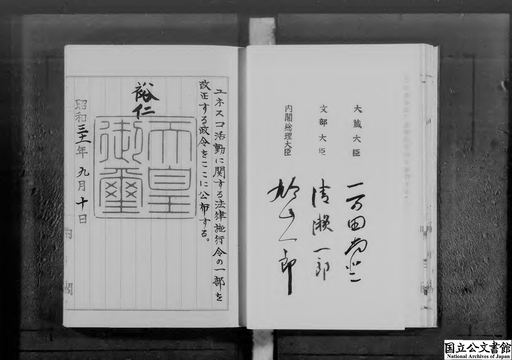 大蔵大臣
一万田尚登
文部大臣
清瀬一郎
内閣総理大臣
鳩山一郎
ユネスコ活動に関する法律施行令の一部を
改正する政令をここに公布する。
裕仁
天皇
御璽
昭和三十一年九月十日
内閣
国立公文書館
National Archives of Japan